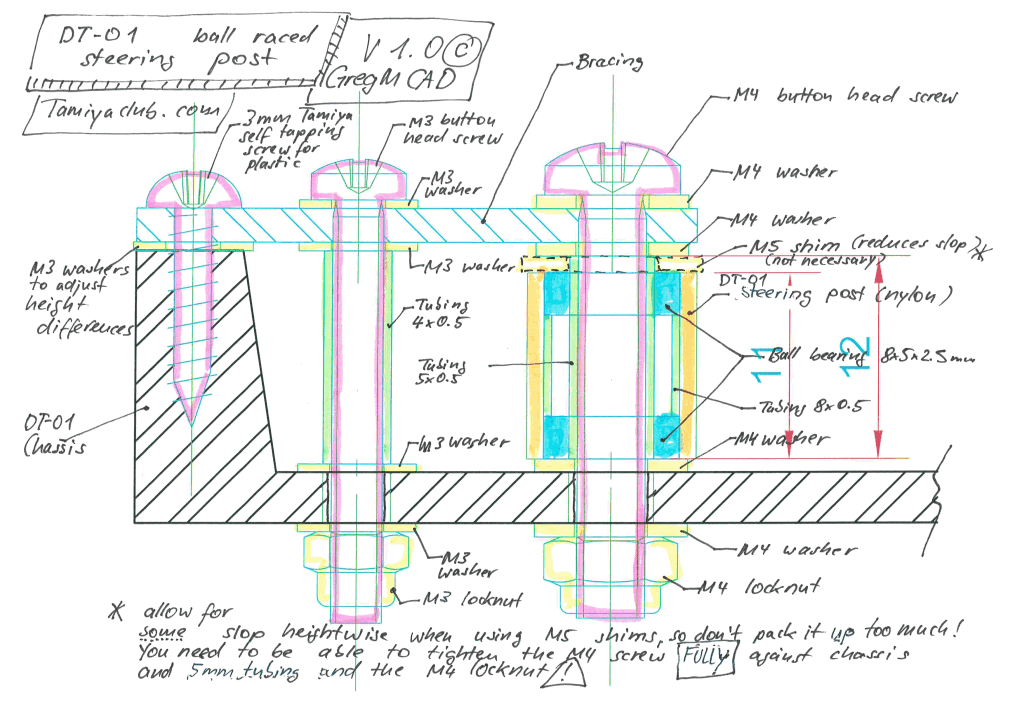 DT-01 ball raced
steering post
V 1.0 ©
GregM CAD
Tamiyaclub.com
3mm Tamiya
self tapping
screw for
plastic
M3 button
head screw
Bracing
M4 button head screw
M3
washer
M4 washer
M4 washer
M5 shim (reduces slop)*
(not necessary)
M3 washer
M3 washers
to adjust
height
differences
DT-01
steering post (nylon)
Tubing
4x0.5
Tubing
5x0.5
11
12
Ball bearing 8x5x2.5mm
Tubing 8x0.5
DT-01
Chassis
M3 washer
M4 washer
M3
washer
M4 washer
M3 locknut
M4 locknut
* allow for
some slop heightwise when using M5 shims, so don't pack it up too much!
You need to be able to tighten the M4 screw FULLY against chassis
and 5mm tubing and the M4 locknut !